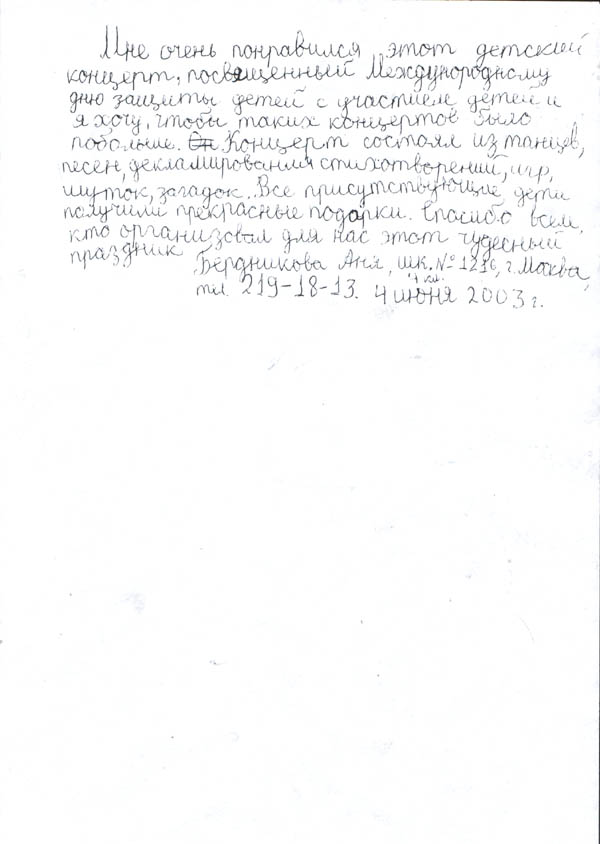 Мне очень понравился этот детский
концерт, посвященный Международному
дню защиты детей с участием детей и
я хочу, чтобы таких концертов было
побольше. Концерт состоял из танцев,
песен, декламирования стихотворений, игр,
шуток, загадок. Все присутствующие дети
получили прекрасные подарки. Спасибо всем,
кто организовал для нас этот чудесный
праздник
Бердникова Аня, шк. № 1216, г. Москва,
4 кл.
тел. 219-18-13. 4 июня 2003 г.